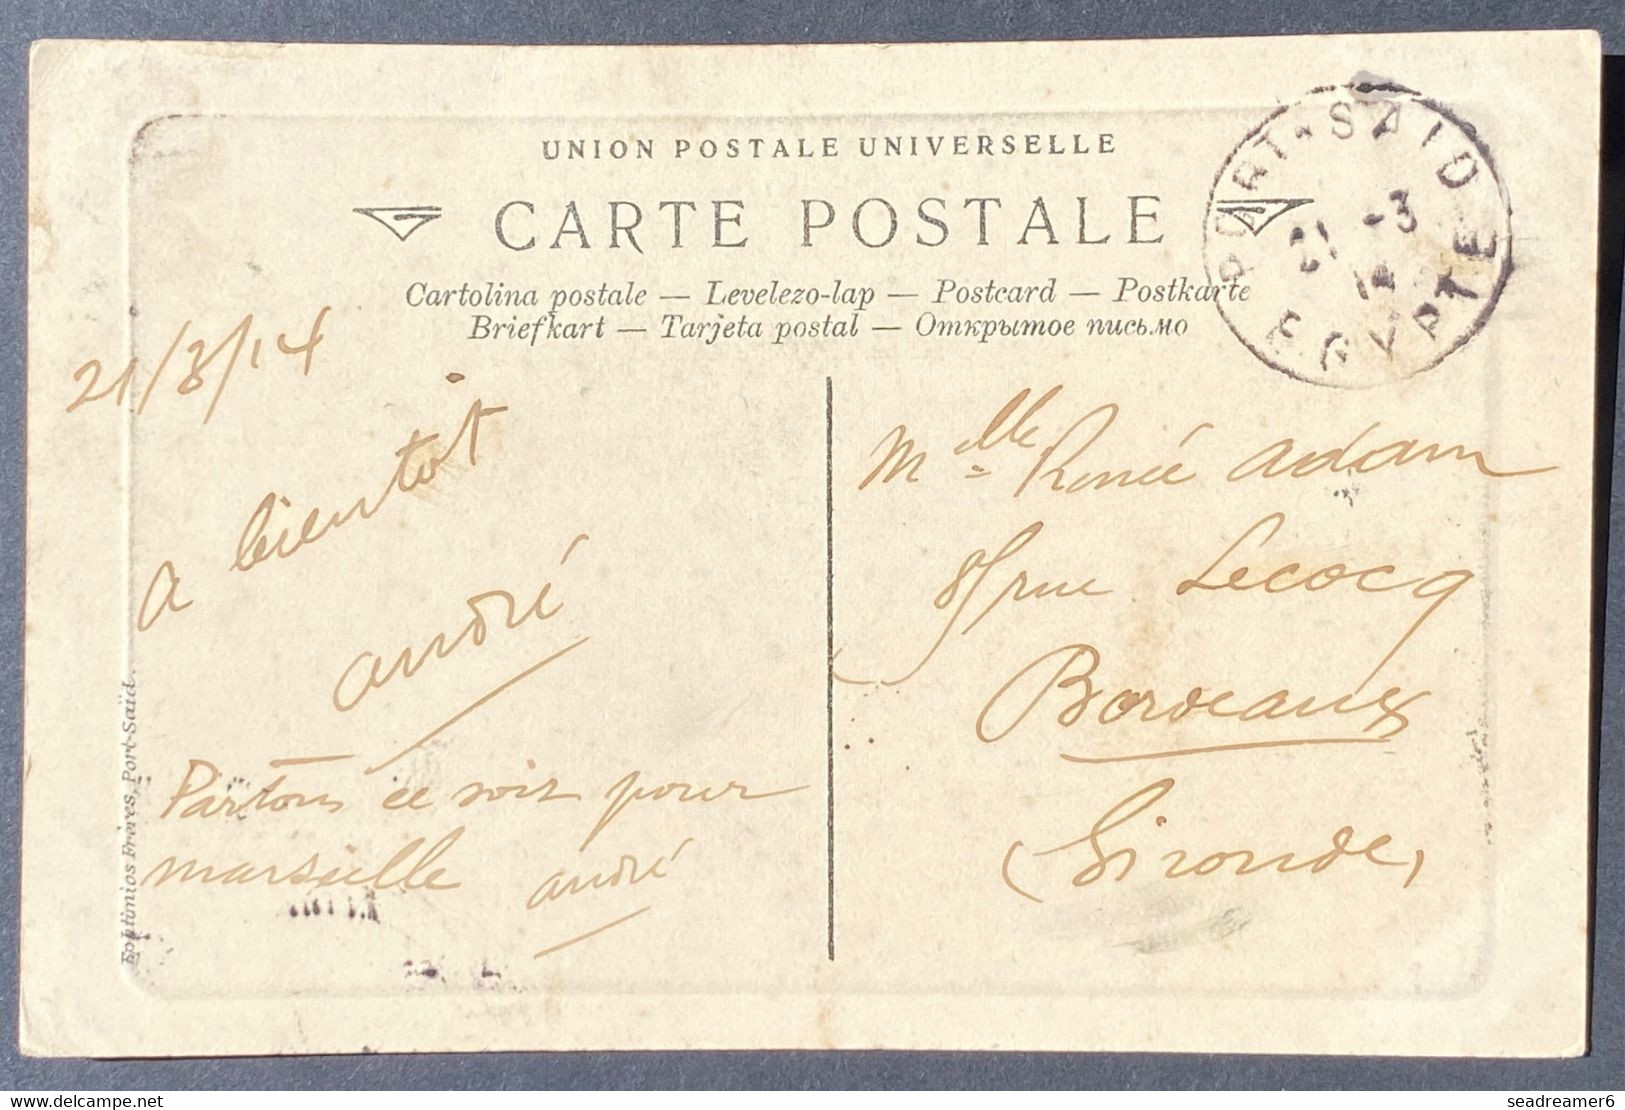 UNION POSTALE UNIVERSELLE
CARTE POSTALE
Cartolina postale — Levelezo-lap — Postcard — Postkarte
Briefkart — Tarjeta postal — Открытое письмо
PORT-SAID
21 -3
14
EGYPTE
21/3/14
a bientot
andré
Partons ce soir pour
marseille andré
Melle Renée adam
rue Lecocq
Bordeaux
(Gironde)
Ephtimios Frères, Port-Saïd.
www.delcampe.net
seadreamer6